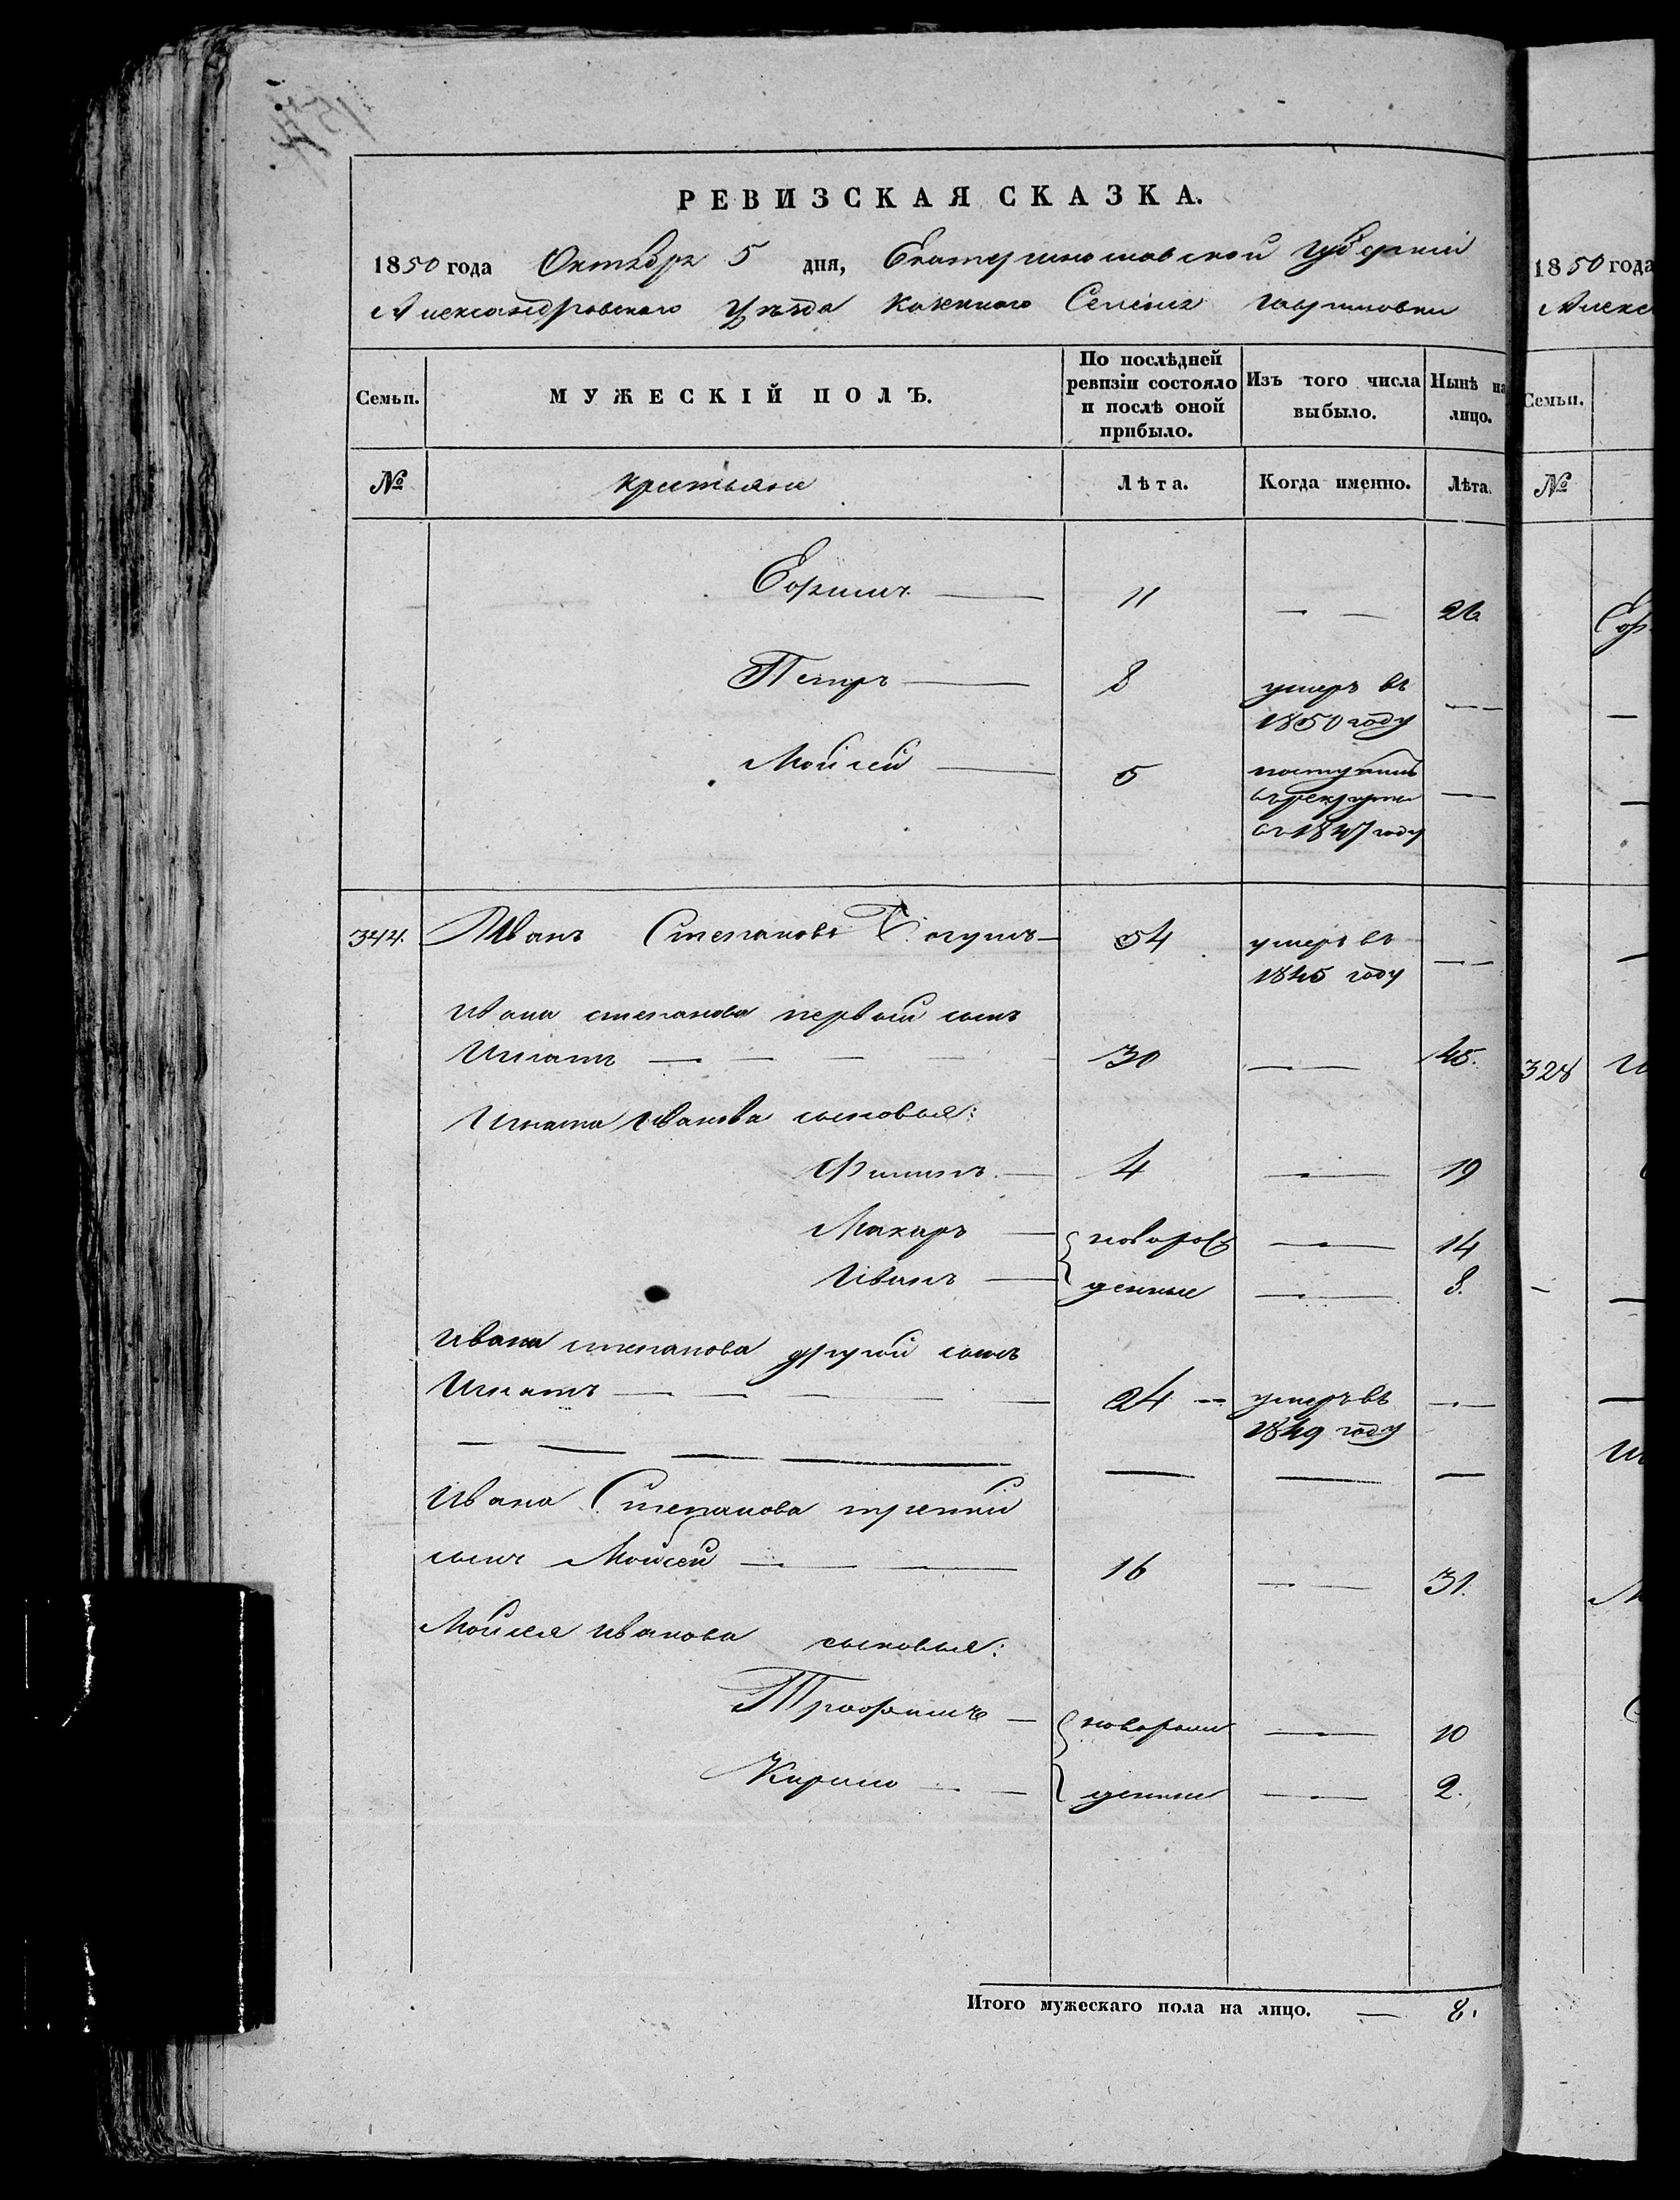 РЕВИЗСКАЯ СКАЗКА.
1850 года Октября 5 дня, Екатеринославской губернии
Александровского уѣзда казенного Селенія
Семьи. МУЖЕСКІЙ ПОЛЪ. По послѣдней ревизіи состояло и послѣ оной прибыло. Изъ того числа выбыло. Нынѣ на лицо.
№ крестьяне Лѣта. Когда именно. Лѣта.
Ефимъ 11 26
Петръ 8 умеръ въ
1850 году
Мойсей 5 поступилъ
въ рекруты
въ 1847 году
344. Иванъ Степановъ 54 умеръ въ
1845 году
Ивана степанова первый сынъ
Игнатъ 30 45.
Игната Иванова сыновья:
Филипъ 4 19
Макаръ новорож 14
Иванъ денные 8.
Ивана степанова другой сынъ
Игнатъ 24 умеръ въ
1849 году
Ивана Степанова третий
сынъ Мойсей 16 31.
Мойсея Иванова сыновья:
Трофимъ новорож 10
Кирило денные 2.
Итого мужескаго пола на лицо. 8.
1850 года
Алекс
Семьи.
№
328